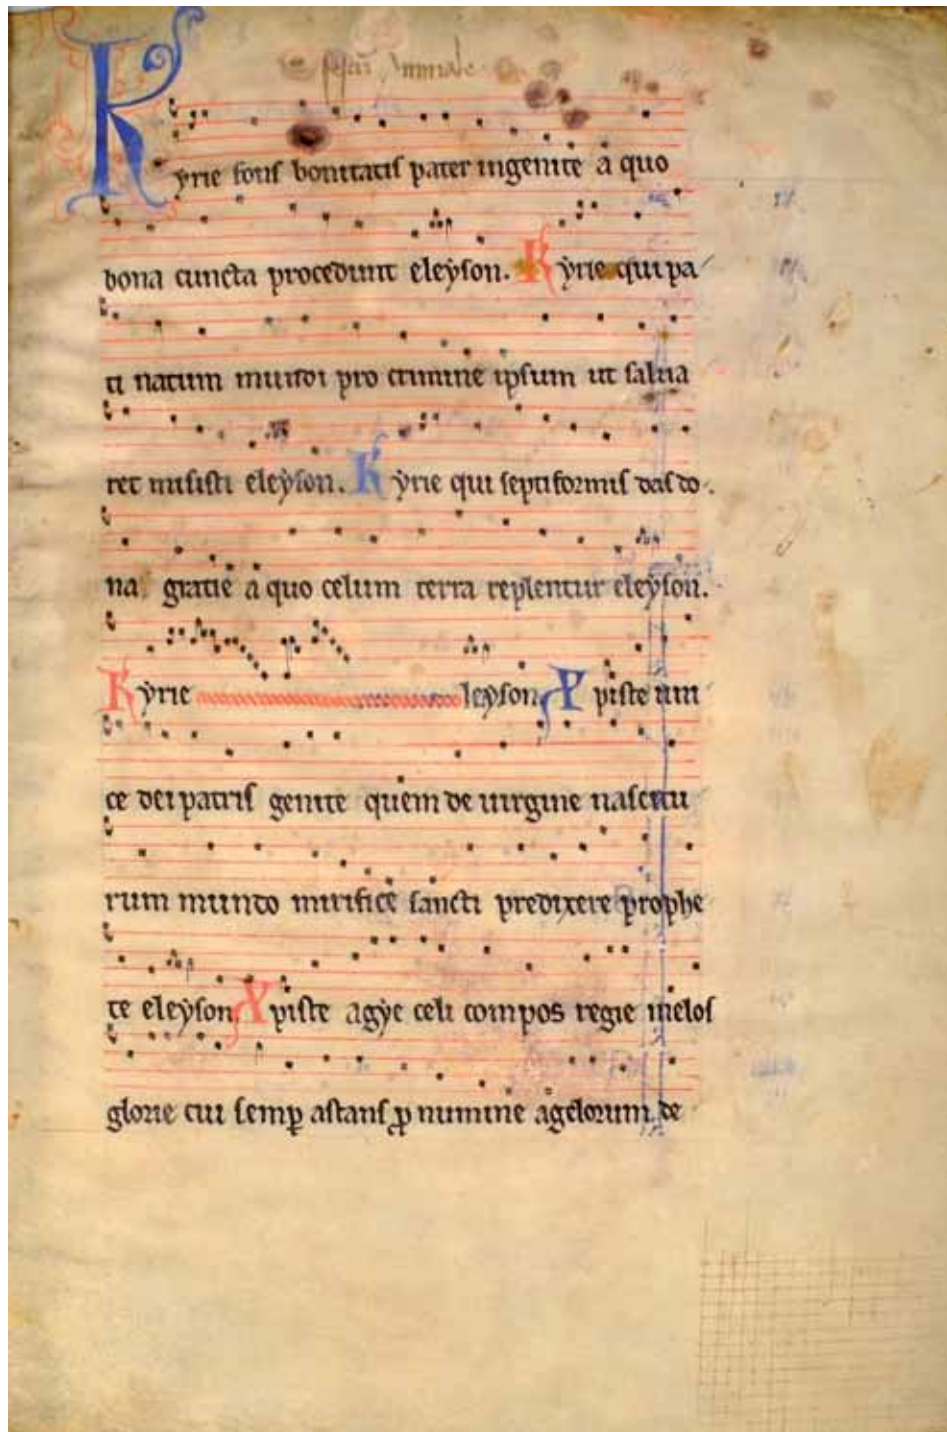 Kyrie fons bonitatis pater ingenite a quo
bona cuncta procedunt eleyson. Kyrie qui pa
ti natum mundi pro crimine ipsum ut salua
ret misisti eleyson. Kyrie qui septiformis das do
na gratie a quo celum terra replentur eleyson.
Kyrie leyson Xpiste uni
ce dei patris genite quem de uirgine nascitu
rum mundo mirifice sancti predixere prophe
te eleyson Xpiste agye celi compos regie melos
glorie cui semꝑ astans ꝓ numine agelorum de